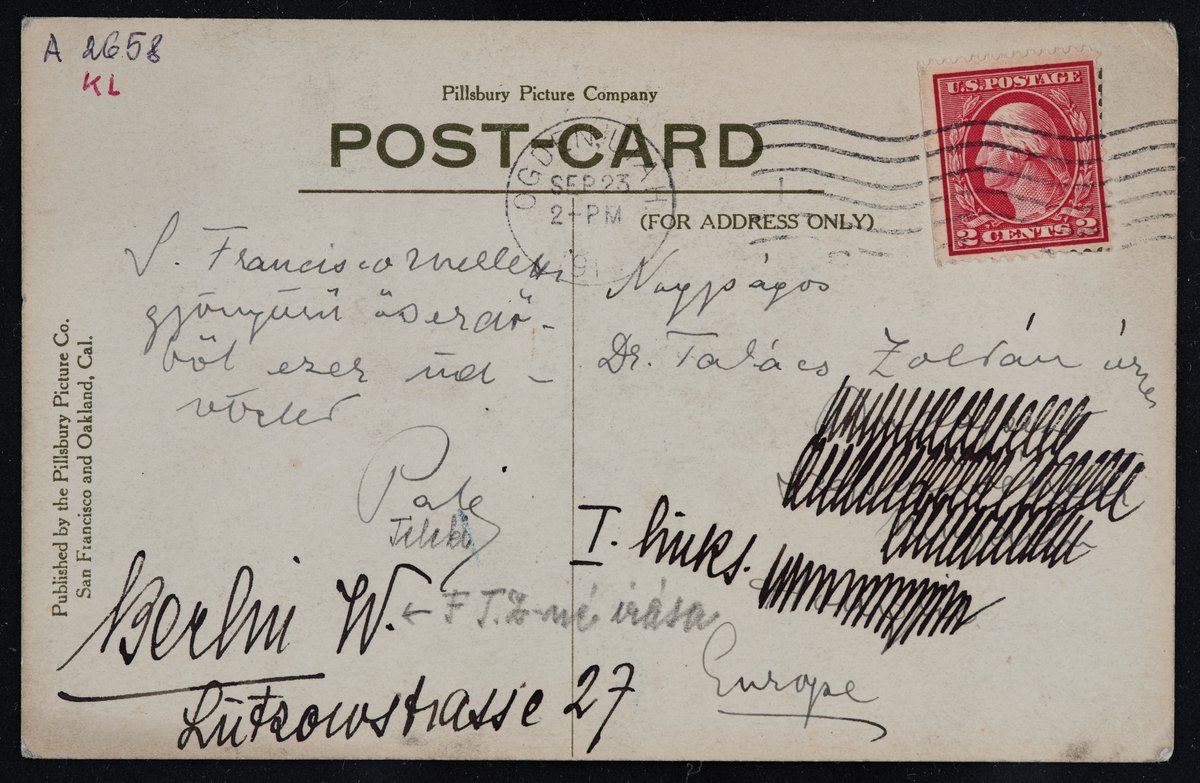 A 2658
KL
Pillsbury Picture Company
POST-CARD
(FOR ADDRESS ONLY)
U.S. POSTAGE
2 CENTS 2
OGDEN, UTAH
SEP 23
2-PM
191
S. Francisco melletti
gyönyürü őserdő-
ből ezer üd-
vözlet
Nagyságos
Dr. Takács Zoltán úrnak
I. links.
Berlin W.
← F T.Z-né írása
Lützowstrasse 27
Europe
Published by the Pillsbury Picture Co.
San Francisco and Oakland, Cal.